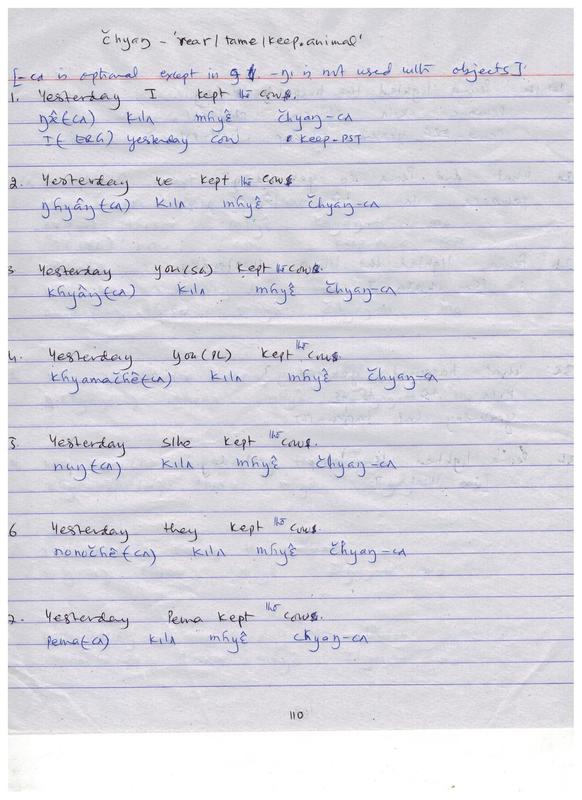 čhyaŋ – 'rear/tame/keep.animal'
[-cʌ is optional except in 9 . -ŋi is not used with objects].
1. Yesterday I kept the cow.
ŋɛ̂(cʌ) kilʌ mɦyɛ̂ čhyaŋ-cʌ
I(ERG) yesterday cow keep-PST
2. Yesterday we kept the cow.
ŋɦyâŋ(cʌ) kilʌ mɦyɛ̂ čhyaŋ-cʌ
3 Yesterday you(SG) kept the cow.
khyâŋ(cʌ) kilʌ mɦyɛ̂ čhyaŋ-cʌ
4. Yesterday you(PL) kept the cow.
khyamačhê(cʌ) kilʌ mɦyɛ̂ čhyaŋ-cʌ
5. Yesterday s/he kept the cow.
nuŋ(cʌ) kilʌ mɦyɛ̂ čhyaŋ-cʌ
6 Yesterday they kept the cow.
nonočhê(cʌ) kilʌ mɦyɛ̂ čhyaŋ-cʌ
7. Yesterday Pema kept the cow.
pema(-cʌ) kilʌ mɦyɛ̂ chyaŋ-cʌ
110